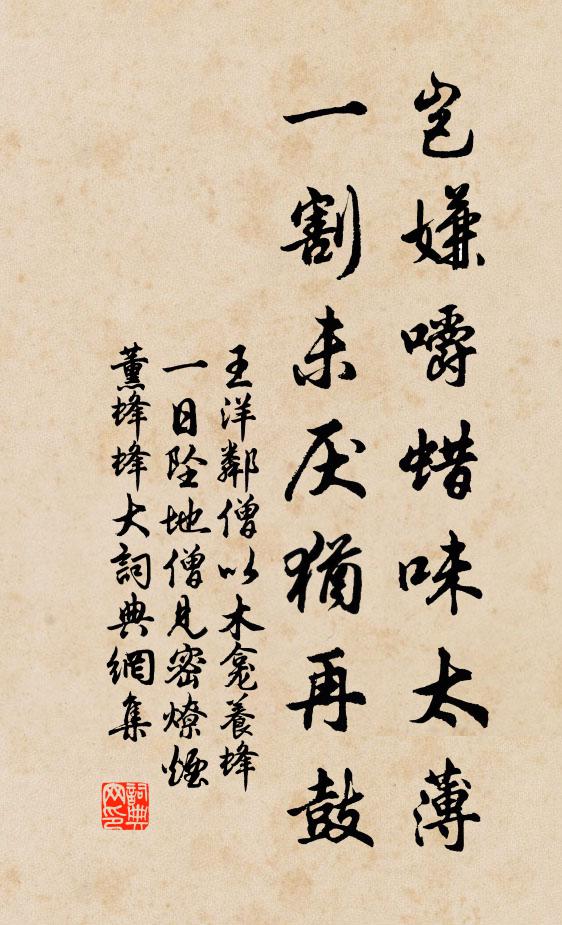 岂嫌嚼蜡味太薄
一割未厌猶再鼓
王洋鄰僧以木龛養蜂
一日坠地僧見密燎煙
薰蜂蜂大詞典網集
詞典网印